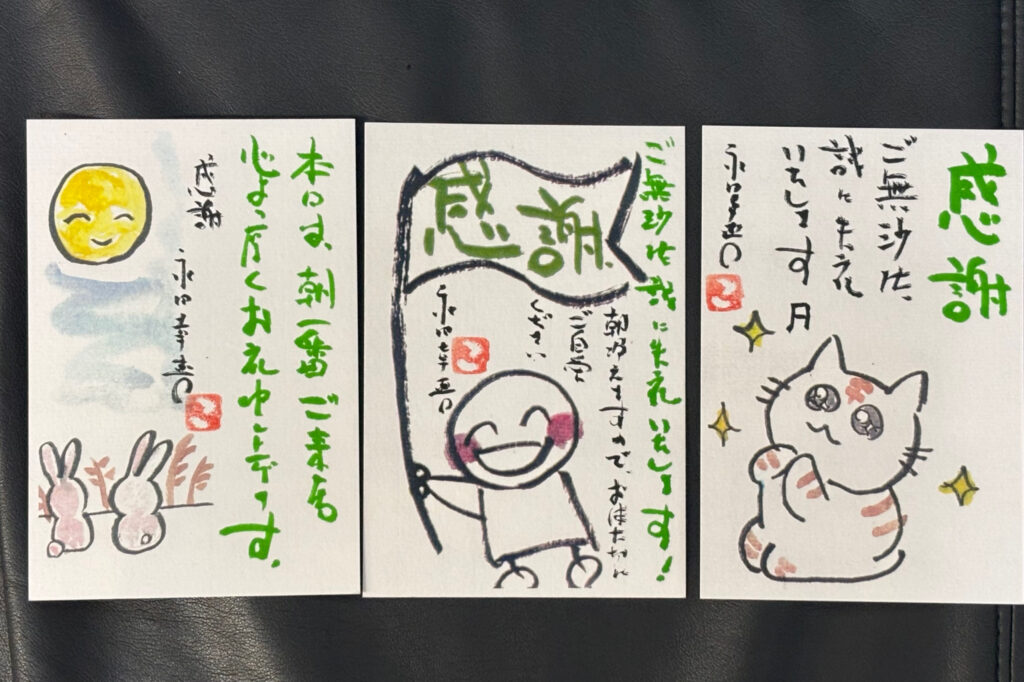 本日は、朝一番ご来店
心より厚くお礼申し上げます。
感謝
永田幸
ご無沙汰誠に失礼いたします!
感謝
朝冷えますので、お体大切に
ご自愛
ください
永田幸
感謝
ご無沙汰、
誠に失礼
いたします
月
永田幸